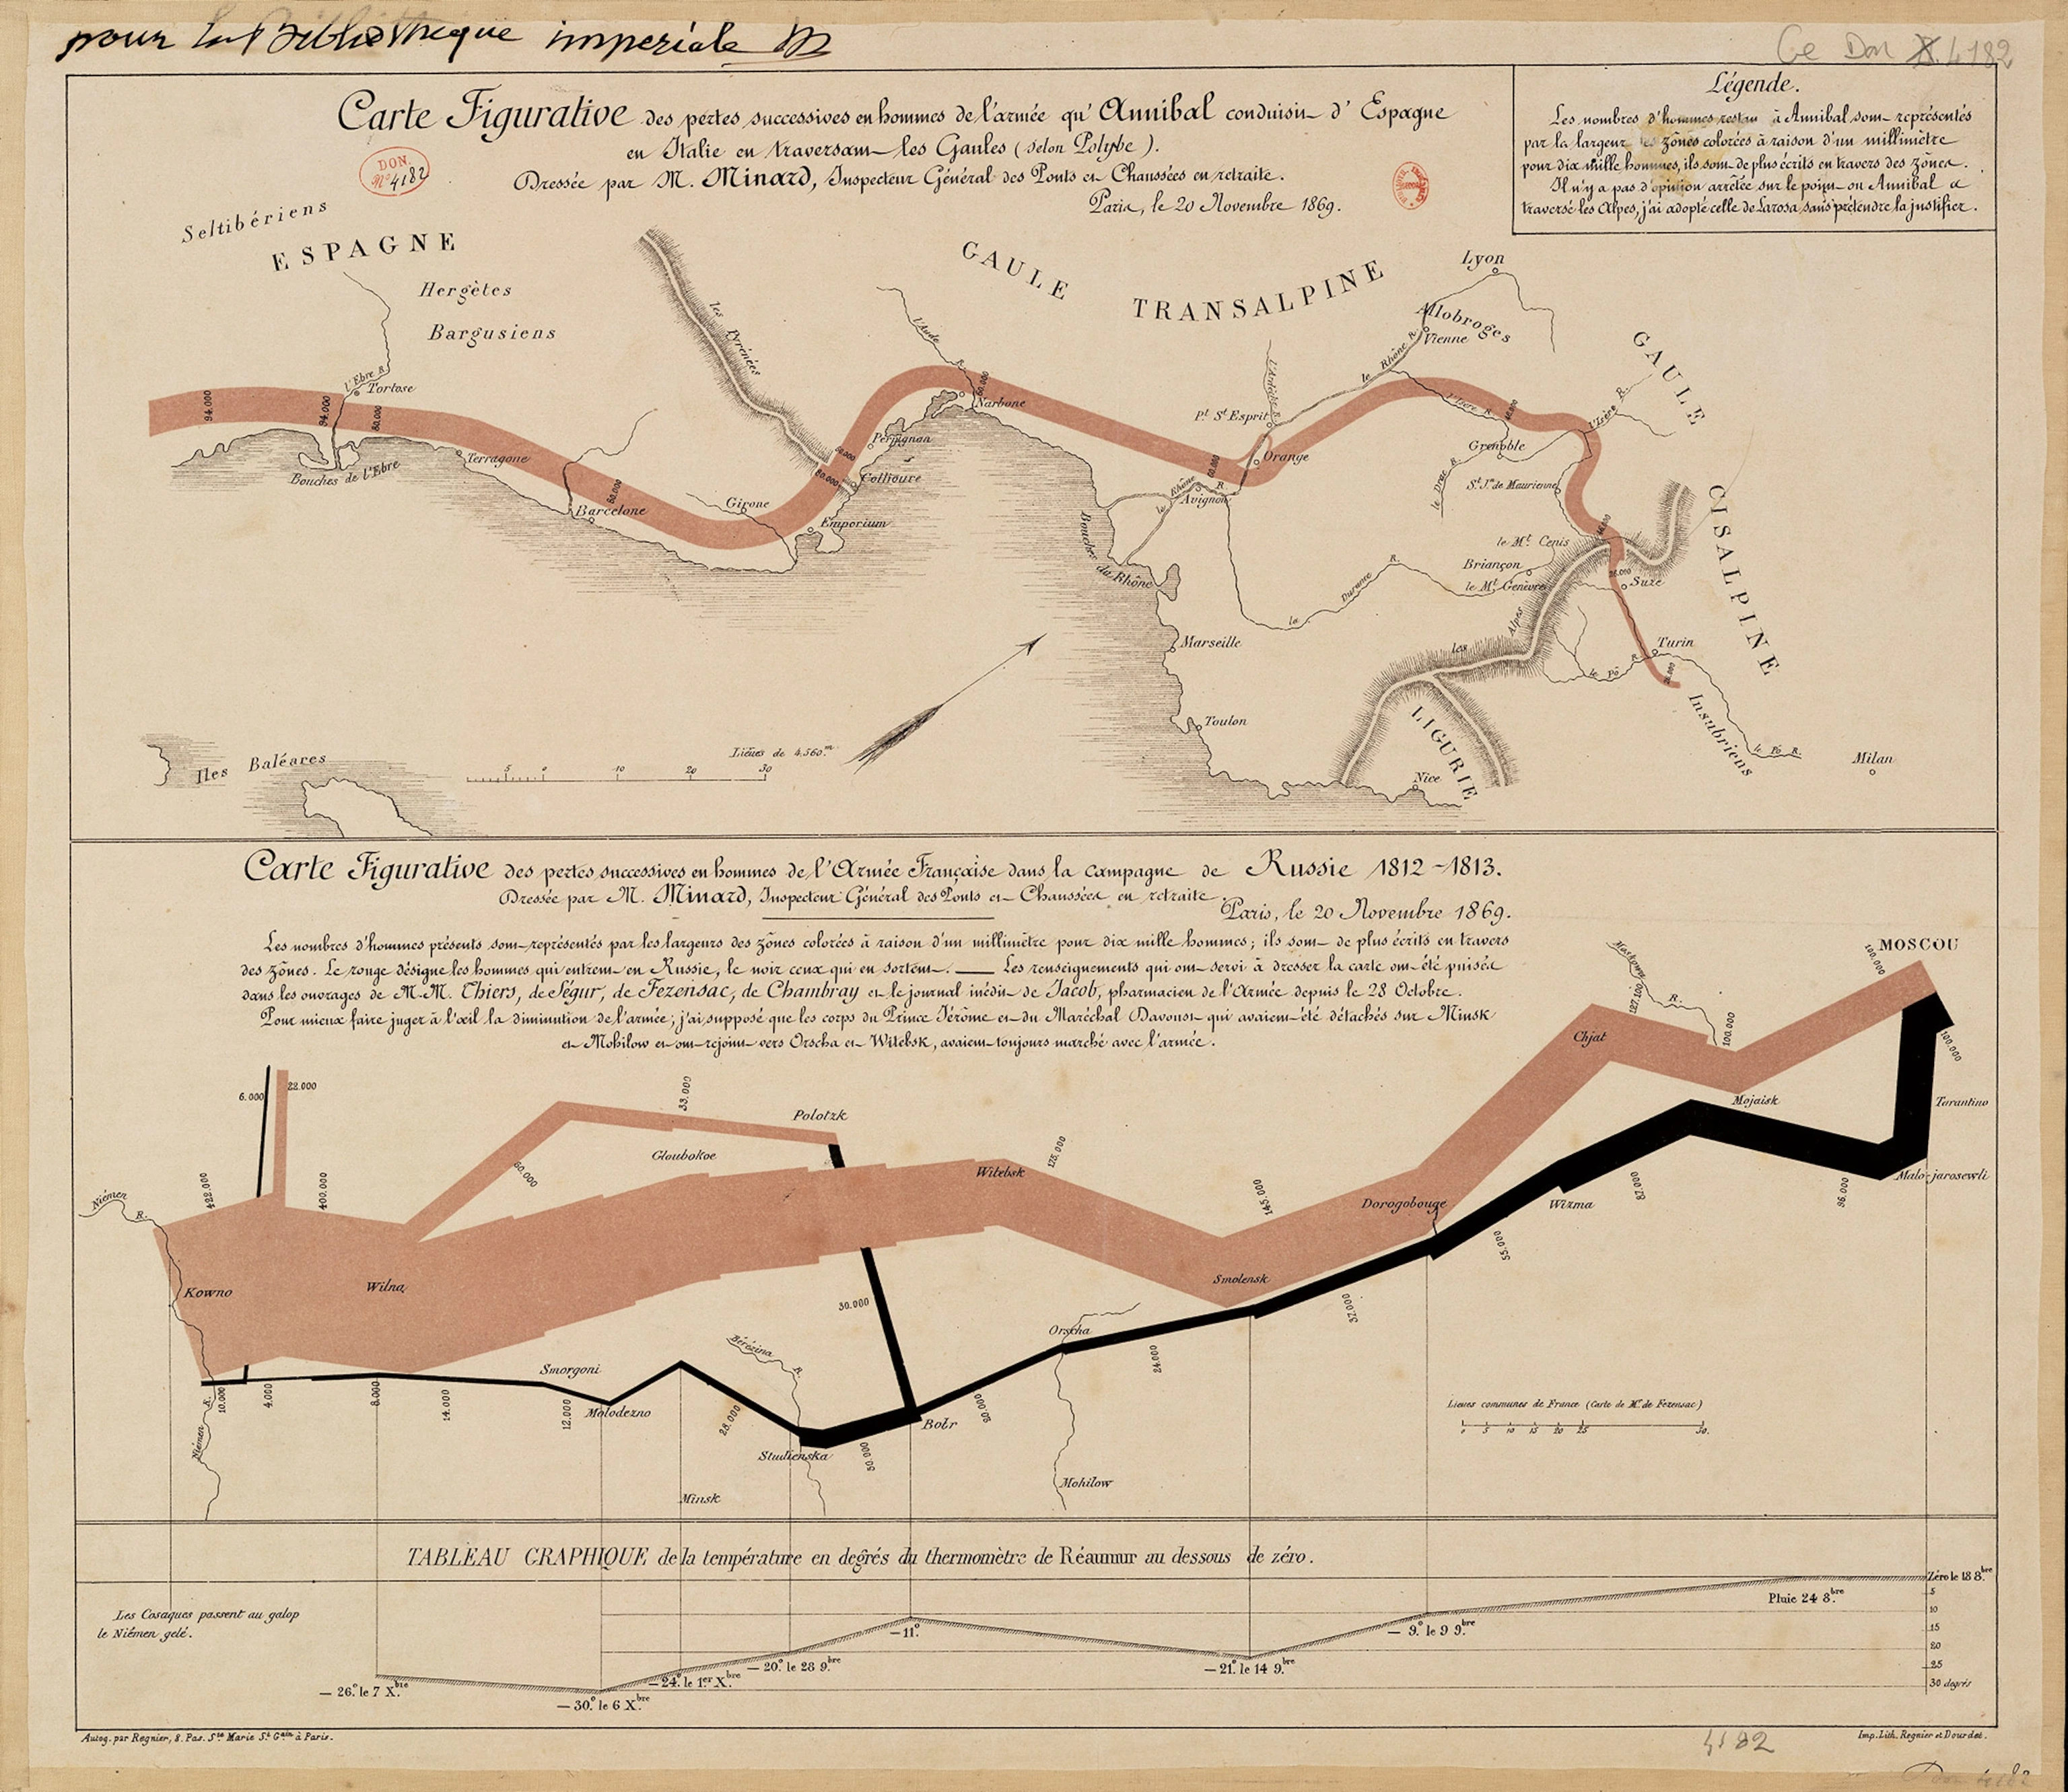 pour la Bibliothèque impériale
Ge Don 4182
Carte Figurative des pertes successives en hommes de l'armée qu'Annibal conduisit d'Espagne
en Italie en traversant les Gaules (selon Polybe).
Dressée par M. Minard, Inspecteur Général des Ponts et Chaussées en retraite.
Paris, le 20 Novembre 1869.
DON.
Nº 4182
Légende.
Les nombres d'hommes restant à Annibal sont représentés
par la largeur des zônes colorées à raison d'un millimètre
pour dix mille hommes, ils sont de plus écrits en travers des zônes.
Il n'y a pas d'opinion arrêtée sur le point où Annibal a
traversé les Alpes, j'ai adopté celle de Larosa sans prétendre la justifier.
Seltibériens
ESPAGNE
Hergètes
Bargusiens
les Pyrénées
GAULE TRANSALPINE
Lyon
Allobroges
Vienne
GAULE CISALPINE
l'Aude R.
l'Ardèche R.
le Rhône R.
94.000
94.000
80.000
l'Ebre R.
Tortose
Bouches de l'Ebre
Terragone
60.000
Barcelone
Girone
Emporium
60.000
60.000
Collioure
Perpignan
50.000
Narbone
Pt. St Esprit
Orange
60.000
Avignon
le Rhône R.
Bouches du Rhône
l'Isère R.
l'Isère R.
Grenoble
le Drac R.
St. Jn. de Maurienne
le Mt. Cenis
Briançon
le Mt Genèvre
26.000
Suze
la Durance R.
les Alpes
Turin
le Pô R.
26.000
Insubriens
le Pô R.
Milan
Marseille
Toulon
LIGURIE
Nice
Iles Baléares
Lieües de 4.560.m
5 0 10 20 30
Carte Figurative des pertes successives en hommes de l'Armée Française dans la campagne de Russie 1812-1813.
Dressée par M. Minard, Inspecteur Général des Ponts et Chaussées en retraite.
Paris, le 20 Novembre 1869.
Les nombres d'hommes présents sont représentés par les largeurs des zônes colorées à raison d'un millimètre pour dix mille hommes; ils sont de plus écrits en travers
des zônes. Le rouge désigne les hommes qui entrent en Russie, le noir ceux qui en sortent. — Les renseignements qui ont servi à dresser la carte ont été puisés
dans les ouvrages de M.M. Thiers, de Ségur, de Fezensac, de Chambray et le journal inédit de Jacob, pharmacien de l'Armée depuis le 28 Octobre.
Pour mieux faire juger à l'œil la diminution de l'armée, j'ai supposé que les corps du Prince Jérôme et du Maréchal Davoust qui avaient été détachés sur Minsk
et Mohilow et ont rejoint vers Orscha et Witebsk, avaient toujours marché avec l'armée.
MOSCOU
100.000
Moskowa R.
127.100
100.000
Chjat
Mojaisk
100.000
Tarantino
Malo-jarosewli
6.000
22.000
422.000
400.000
Niémen R.
Kowno
Wilna
60.000
33.000
Gloubokoe
Polotzk
Witebsk
175.000
145.000
Dorogobouge
Smolensk
55.000
Wizma
87.000
96.000
37.000
24.000
Orscha
20.000
Bobr
30.000
50.000
Bérézina R.
Studienska
28.000
Minsk
Mohilow
Molodezno
Smorgoni
12.000
14.000
8.000
4.000
10.000
Niémen R.
Lieues communes de France (Carte de Mr. de Fezensac)
0 5 10 15 20 25 50.
TABLEAU GRAPHIQUE de la température en degrés du thermomètre de Réaumur au dessous de zéro.
Les Cosaques passent au galop
le Niémen gelé.
– 26.° le 7 Xbre
– 30.° le 6 Xbre
– 24.° le 1er Xbre
– 20.° le 28 9bre
– 11.°
– 21.° le 14 9bre
– 9.° le 9 9bre
Pluie 24 8bre
Zéro le 18 8bre
5
10
15
20
25
30 degrés
Autog. par Regnier, 8. Pas. Ste Marie St Gain à Paris.
4182
Imp. Lith. Regnier et Dourdet.